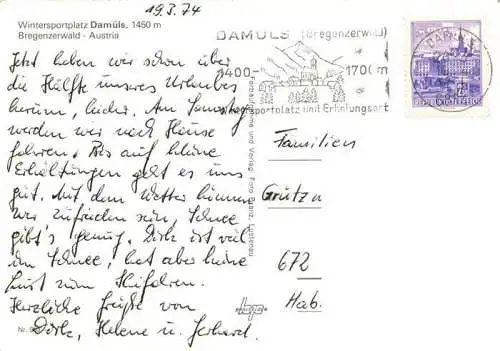 19.3.74
Wintersportplatz Damüls, 1450 m
Bregenzerwald - Austria
Jetzt haben wir schon über
die Hälfte unseres Urlaubes
herum, leider. Am Samstag
werden wir nach Hause
fahren. Bis auf kleine
Erkältungen geht es uns
gut. Mit dem Wetter können
wir zufrieden sein, Schnee
gibt's genug. Dirk ist viel
im Schnee, hat aber keine
Lust zum Skifahren.
Herzliche Grüße von
Dirk, Helene u. Gerhard.
DAMÜLS (Bregenzerwald)
1400 1700 m
Wintersportplatz und Erholungsort
DAMÜLS
REPUBLIK ÖSTERREICH
Familien
Grützn
672
Hab.
Verlag Foto Branz, Lustenau
Nr.